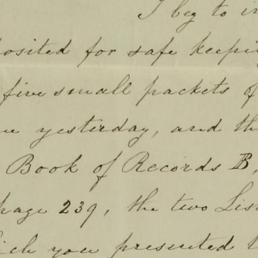 I beg to in
posited for safe keepin
five small packets of
yesterday, and th
Book of Records B,
page 239, the two Lis
ich you presented t